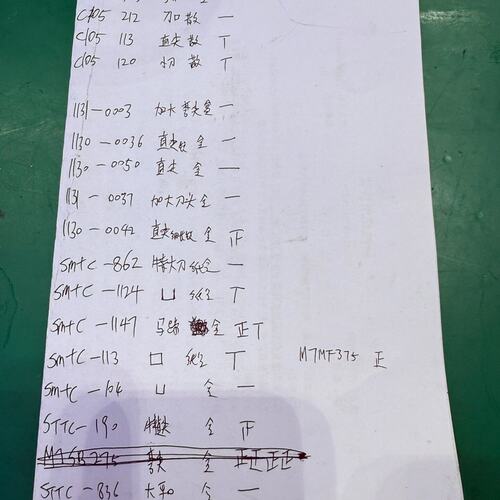 C105 212 加 散 一
C105 113 直尖 散 丅
C105 120 切 散 丅
1131-0003 加大弯尖 全 一
1130-0036 直尖 全 一
1130-0050 直尖 全 一
1131-0037 加大刀头 全 一
1130-0042 直尖 全 正
SMTC-862 特大刀 纸全 一
SMTC-1124 凵 纸全 丅
SMTC-1147 马蹄 全 正丅
SMTC-113 口 纸全 丅 M7MF375 正
SMTC-104 凵 全 一
STTC-190 全 正
M7SB275 弯尖 全 正正正正
STTC-836 大平 全 一